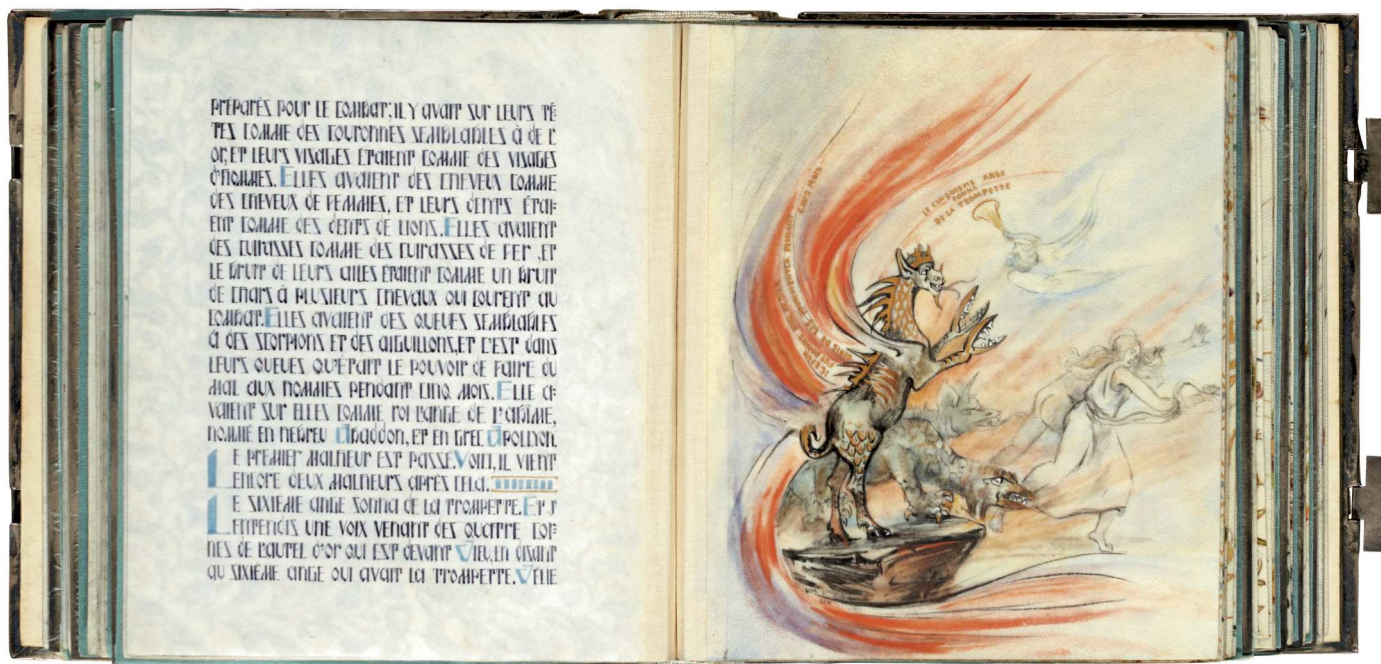 PRÉPARÉS POUR LE COMBAT; IL Y AVAIT SUR LEURS TÊ-
TES COMME DES COURONNES SEMBLABLES À DE L'
OR, ET LEURS VISAGES ÉTAIENT COMME DES VISAGES
D'HOMMES. ELLES AVAIENT DES CHEVEUX COMME
DES CHEVEUX DE FEMMES, ET LEURS DENTS ÉTAI-
ENT COMME DES DENTS DE LIONS. ELLES AVAIENT
DES CUIRASSES COMME DES CUIRASSES DE FER, ET
LE BRUIT DE LEURS AILES ÉTAIENT COMME UN BRUIT
DE CHARS À PLUSIEURS CHEVAUX QUI COURENT AU
COMBAT. ELLES AVAIENT DES QUEUES SEMBLABLES
À DES SCORPIONS ET DES AIGUILLONS, ET C'EST DANS
LEURS QUEUES QU'ÉTAIT LE POUVOIR DE FAIRE DU
MAL AUX HOMMES PENDANT CINQ MOIS. ELLE A-
VAIENT SUR ELLES COMME ROI L'ANGE DE L'ABÎME,
NOMMÉ EN HÉBREU ABADDON, ET EN GREC APOLLYON.
LE PREMIER MALHEUR EST PASSÉ. VOICI, IL VIENT
ENCORE DEUX MALHEURS APRÈS CELA.
LE SIXIÈME ANGE SONNA DE LA TROMPETTE. ET J'
ENTENDIS UNE VOIX VENANT DES QUATRE COR-
NES DE L'AUTEL D'OR QUI EST DEVANT DIEU, EN DISANT
AU SIXIÈME ANGE QUI AVAIT LA TROMPETTE. DÉLIE
LE CINQUIÈME ANGE
SONNE
DE LA TROMPETTE
PENDANT CINQ MOIS